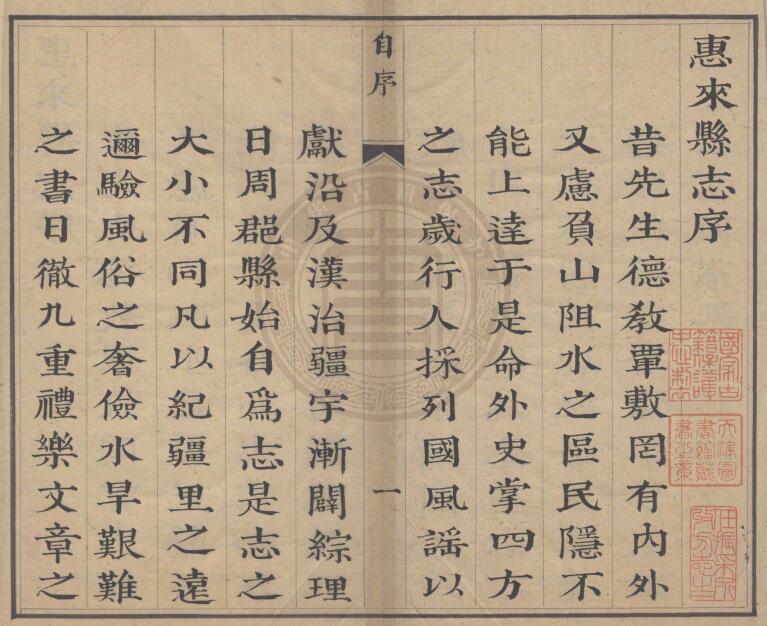 惠來縣志序
昔先生德敎覃敷罔有內外
又慮負山阻水之區民隱不
能上達于是命外史掌四方
之志歲行人採列國風謡以
自序
一
獻沿及漢治疆宇漸闢綜理
日周郡縣始自爲志是志之
大小不同凡以紀疆里之遠
邇驗風俗之奢儉水旱艱難
之書日徹九重禮樂文章之